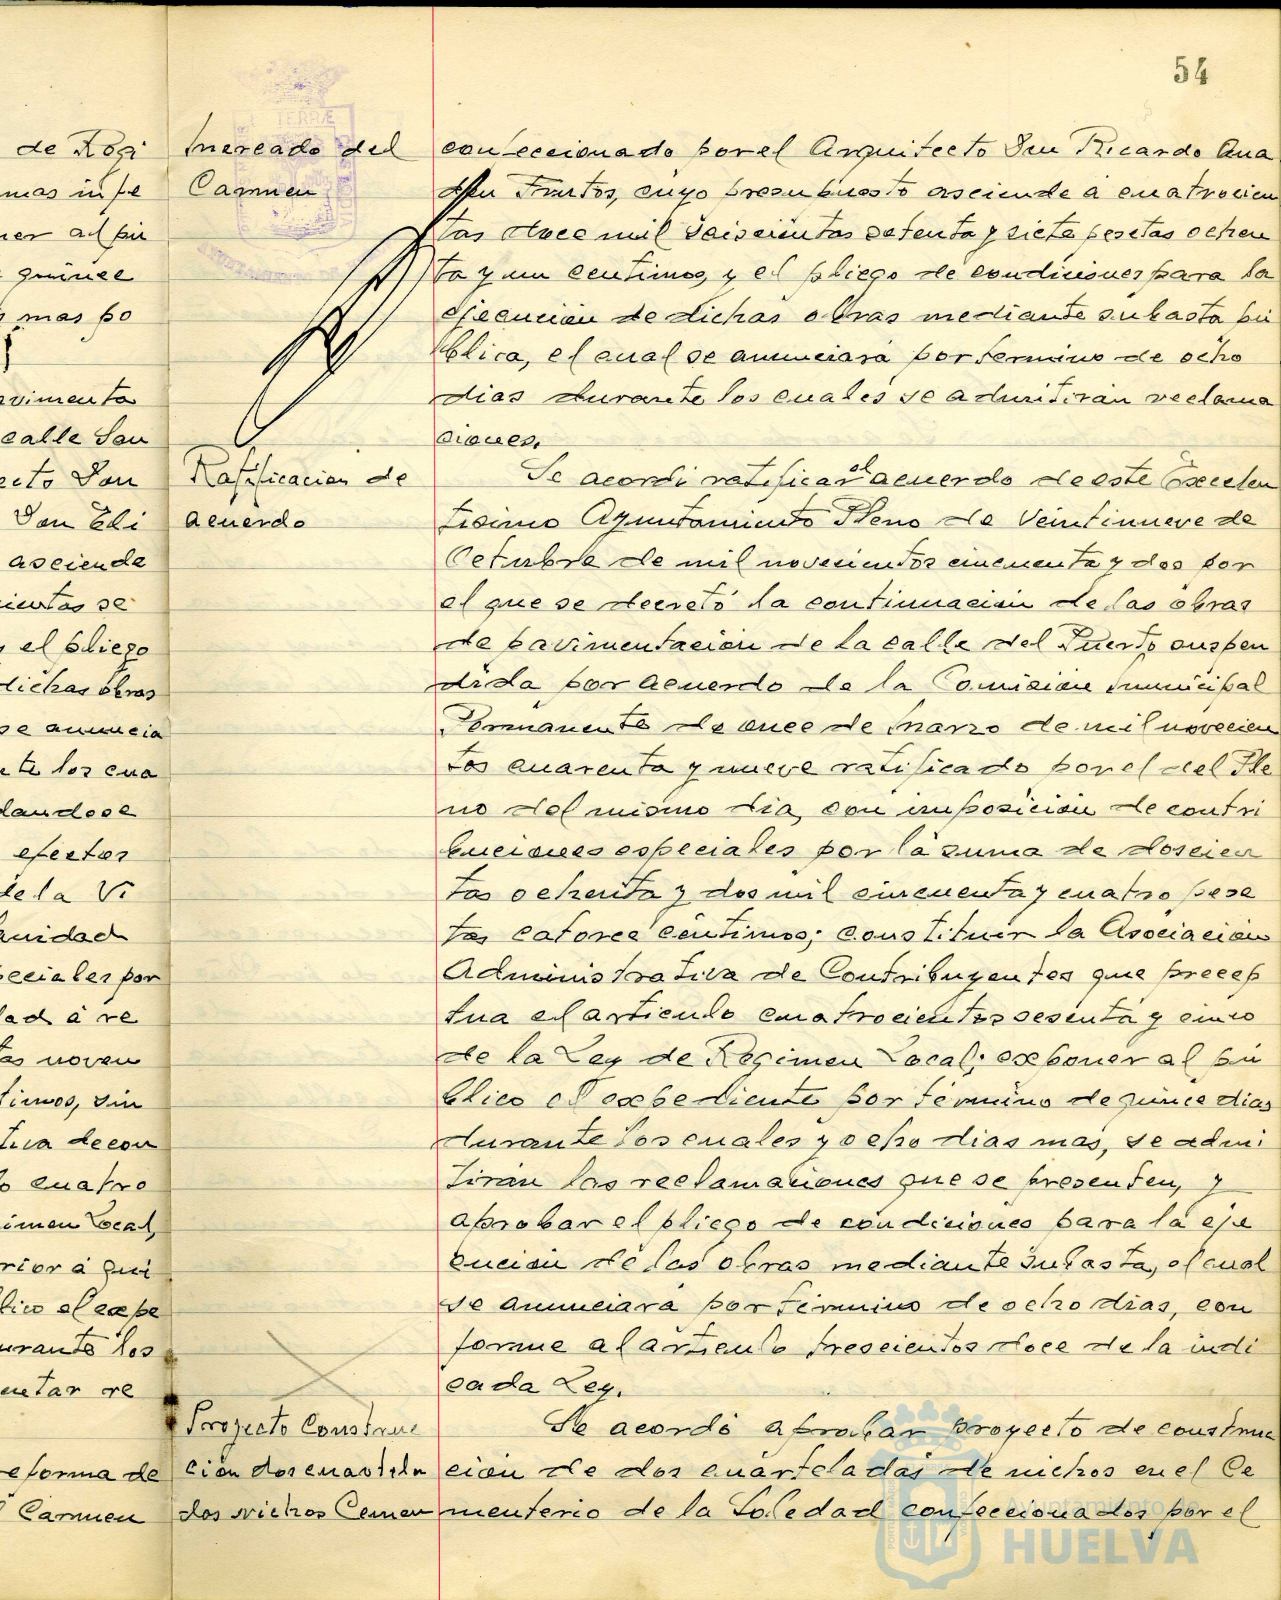 54
de Regi
mas infe
ner al pú
quince
mas po
vimenta
calle San
ecto Don
Don Eli
asciende
cientas se
y el pliego
dichas obras
se anuncia
nte los cua
dandose
efectos
de la Vi
anidad
peciales por
dad á re
tas noven
timos, sin
tiva de con
to cuatro
gimen Local,
rior á qui
blico el expe
urante los
entar re
reforma de
Carmen
mercado del
Carmen
Ratificacion de
acuerdo
Proyecto Construc
ción dos cuartela
dos nichos Cemen
confeccionado por el Arquitecto Don Ricardo Ana
den Frutos, cuyo presupuesto asciende á cuatrocien
tas doce mil seiscientas setenta y siete pesetas ochen
ta y un centimos, y el pliego de condiciones para la
ejecución de dichas obras mediante subasta pú
blica, el cual se anunciará por termino de ocho
dias durante los cuales se admitirán reclama
ciones.
Se acordó ratificar el acuerdo de este Excelen
tisimo Ayuntamiento Pleno de veintinueve de
Octubre de mil novecientos cincuenta y dos por
el que se decretó la continuación de las obras
de pavimentación de la calle del Puerto suspen
dida por acuerdo de la Comisión municipal
Permanente de once de marzo de mil novecien
tos cuarenta y nueve ratificado por el del Ple
no del mismo dia, con imposición de contri
buciones especiales por la suma de doscien
tas ochenta y dos mil cincuenta y cuatro pese
tas catorce céntimos; constituir la Asociación
Administrativa de Contribuyentes que precep
tua el articulo cuatrocientos sesenta y cinco
de la Ley de Regimen Local; exponer al pú
blico el expediente por término de quince dias
durante los cuales y ocho dias mas, se admi
tirán las reclamaciones que se presenten, y
aprobar el pliego de condiciones para la eje
cución de las obras mediante subasta, el cual
se anunciará por término de ocho dias, con
forme al articulo trescientos doce de la indi
cada Ley.
Se acordó aprobar proyecto de construc
ción de dos cuarteladas de nichos en el Ce
menterio de la Soledad confeccionados por el
Ayuntamiento de
HUELVA